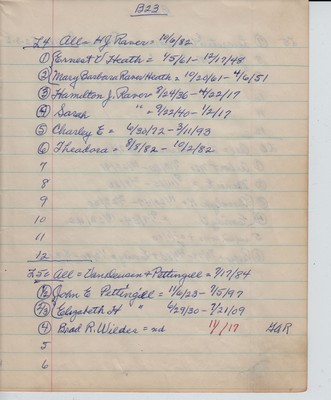 B23
L4 All = H.J. Raver = 10/6/82
① Ernest V Heath = 4/5/61 - 12/17/48
② Mary Barbara Raver Heath = 10/20/61 - 4/6/51
③ Hamilton J. Raver = 9/24/36 - 4/22/17
④ Sarah " = 9/22/40 - 1/2/17
⑤ Charley E = 6/30/72 - 3/11/93
⑥ Theodora = 8/8/82 - 10/2/82
7
8
9
10
11
12
L5 All = Vandeusen & Pettingill = 9/17/84
1/2 John E Pettingill = 11/6/23 - 7/5/97
2/3 Elizabeth H " 6/29/30 - 7/21/09
④ Brad R. Wilder = nd 11/17 GAR
5
6